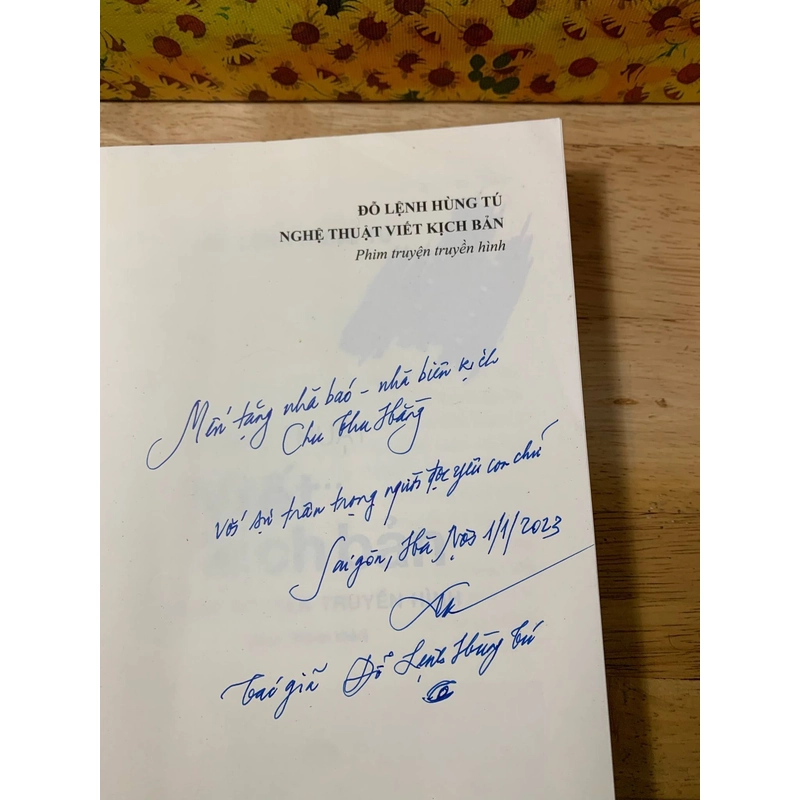 ĐỖ LỆNH HÙNG TÚ
NGHỆ THUẬT VIẾT KỊCH BẢN
Phim truyện truyền hình
Mến tặng nhà báo – nhà biên kịch
Chu Thu Hằng
Với sự trân trọng người đọc yêu con chữ
Saigon, Hà Nội 1/1/2023
Tác giả Đỗ Lệnh Hùng Tú